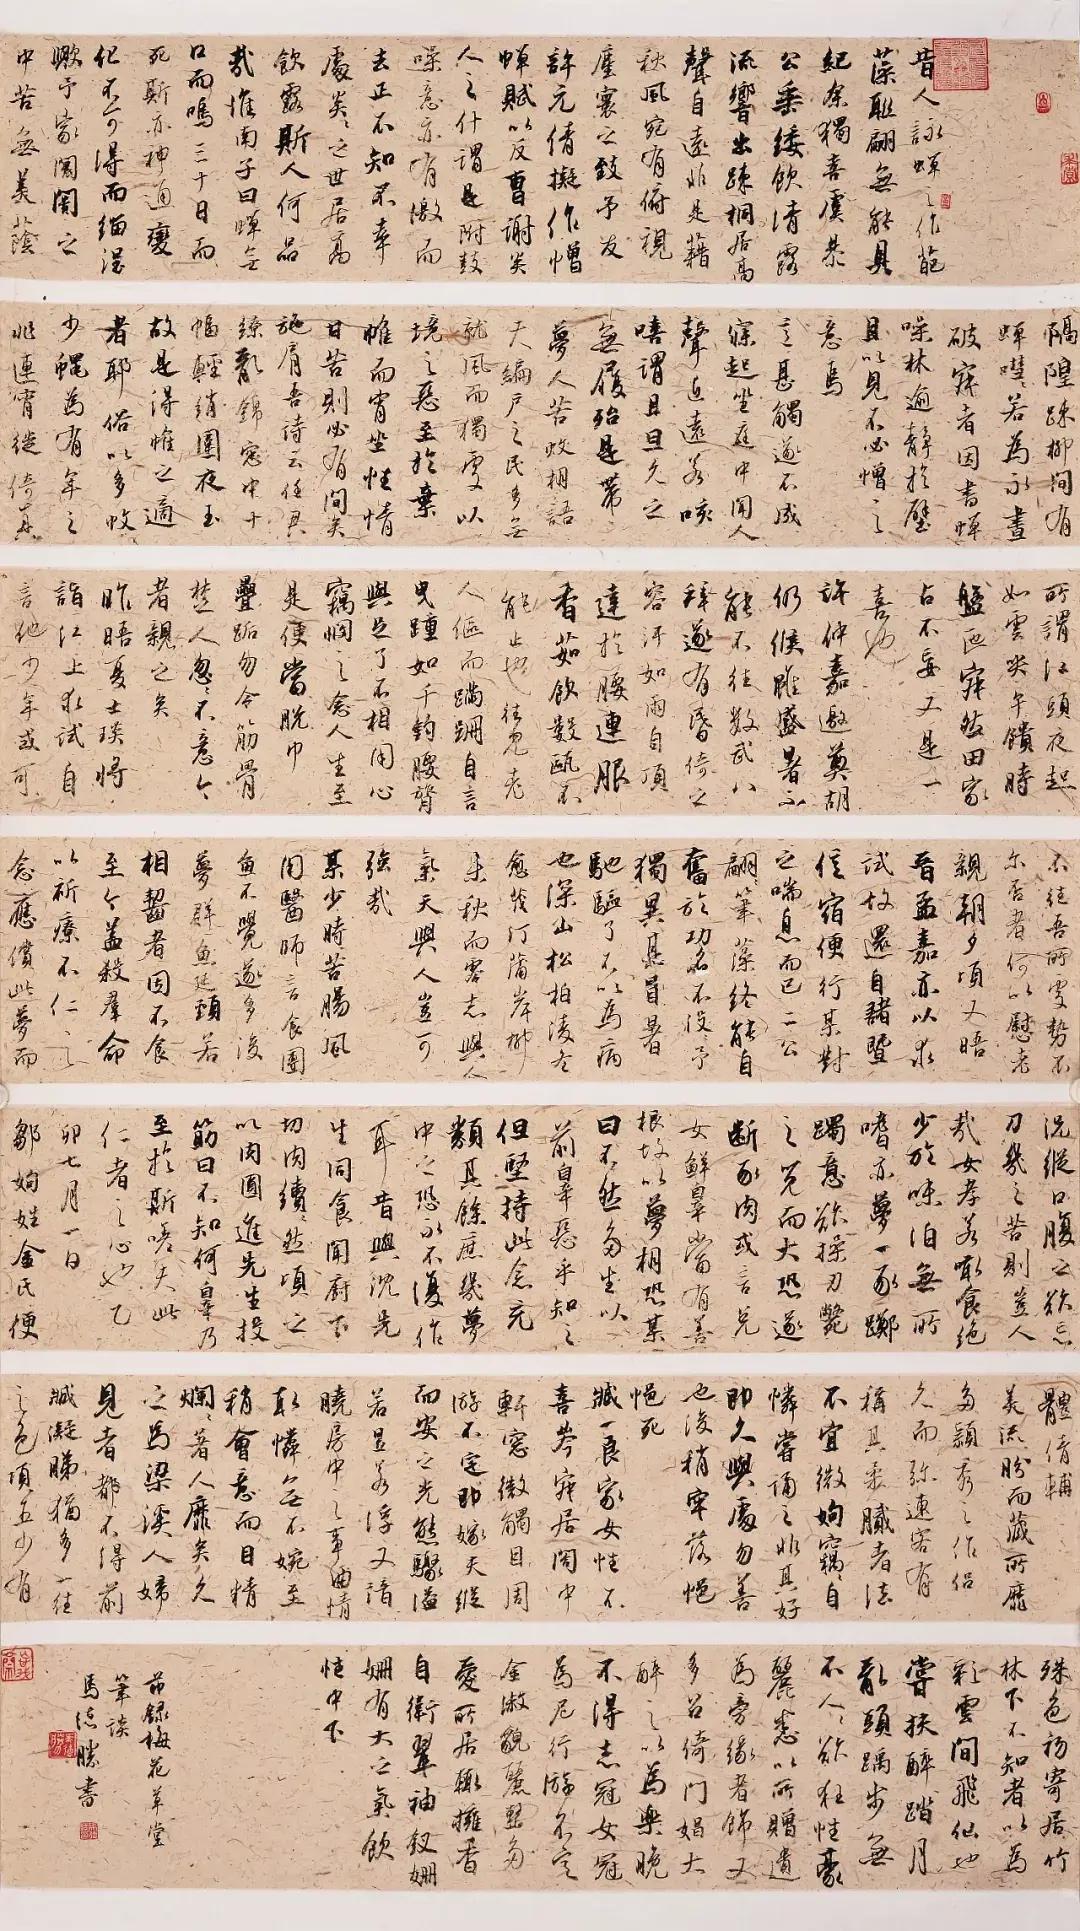 昔人詠蟬之作葩
藻聯翩無能具
紀余獨喜虞恭
公垂緌飲清露
流響出疎桐居高
聲自遠非是藉
秋風宛有俯視
塵寰之致予友
許元倩擬作憎
蟬賦以反曹謝矣
人之什謂是附鼓
噪意亦有激而
去正不知不幸
處炎炎之世居高
飲露斯人何品
哉淮南子曰蟬無
口而鳴三十日而
死斯亦神通變
化不可得而緇涅
歟予家闤闠之
中苦無美蔭
隔隍疎柳間有
蟬嘒嘒若為永晝
破寂者因書蟬
噪林逾靜於壁
且以見不必憎之
意焉
之甚觸遂不成
寐起坐庭中聞人
聲近遠若咳
嘻謂且旦久之
無履殆是帶
夢人苦蚊相語
天編戶之民多無
就風而獨處以
境之惡至於棄
帷而宵坐性情
甘苦則必有間矣
施肩吾詩云任具
繚綾錦窓中十
幅輕綃圍夜玉
故是得帷之適
者耶俗以多蚊
少蠅為有年之
兆連宵徙倚真
所謂江頭夜起
如雲尖午饋時
盤匜寂然田家
占不妄又是一
喜也
許仲嘉邀奠胡
仍候雖盛暑不
能不往數武八
拜遂有昏倚之
容汗如雨自頂
達於腰連服
香茹飲數甌不
能止也往見老
人傴而蹣跚自言
曳踵如千鈞腰膂
與足了不相用心
竊憫之念人生至
是便當脫巾
疊跖勿令筋骨
楚人忽忽不意今
者親之矣
昨晤夏士瑛將
詣江上求試自
言他少年或可
不往吾所處勢不
尔否者何以慰老
親朝夕項又晤
晉孟嘉亦以求
試故還自諸暨
信宿便行某對
之喘息而已二公
翩翩筆藻終能自
奮於功名不役予
獨異甚冒暑
馳驅了不以為病
也深山松柏淩冬
愈茂汀蒲岸柳
未秋而零志與人
氣天與人豈可
強哉
某少時苦腸風
用醫師言食團
魚不覺遂多後
夢群魚延頸若
相齧者因不食
至今蓋殺羣命
以祈療不仁之
念應償此夢而
況縱口腹之欲忘
刀幾之苦則豈人
哉女孝若啖食絕
少於味泊無所
嗜亦夢一豕躑
躅意欲操刀斃
之覺而大恐遂
斷豕肉或言兒
女鮮辜當有善
根故以夢相恐某
曰不然多生以
前辜惡乎知之
但堅持此念充
類其餘庶幾夢
中之恐永不復作
耳昔與沈先
生同食聞廚下
切肉續續然項之
以肉圓進先生投
筋曰不知何辜乃
至於斯嗟夫此
仁者之心也乙
卯七月一日
鄒姁姓金氏便
體倩輔
美流盼而藏所靡
多穎秀之作侶
久而弥連客有
稱具柔膩者法
不宜微姁竊自
憐嘗誦之非其好
即久與處勿善
也後稍牢落悒
悒死
臧一良家女性不
喜岑寂居闁中
軒窓微觸目周
游不定即嫁夫縱
而安之光態驟溢
若昱若浮又諳
曉房中之事曲情
取憐無不婉至
稍會意而目精
爛爛著人靡矣久
之為梁溪人婦
見者都不得前
臧凝睇猶多一往
之色項五少有
殊色初寄居竹
林下不知者以為
彩雲間飛仙也
嘗扶醉踏月
亂頭踽步無
不人人欲狂性豪
麗悉以所贈遺
為旁緣者飾又
多召倚門娼大
醉之以為樂晚
不得志冠女冠
為尼行游不定
金淑貌麗豎多
愛所居輒擁香
自衛翠袖釵姍
姍有大之氣飲
性中下
節錄梅花草堂
筆談
馬德勝書